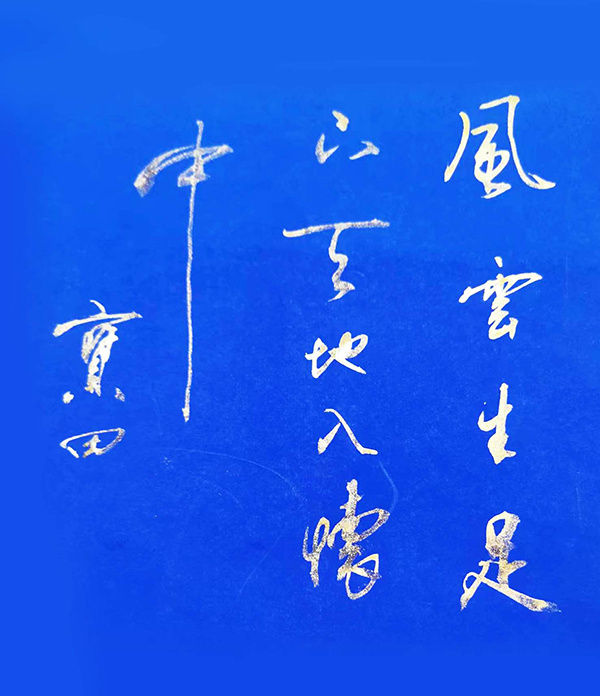 風雲生足
下天地入懷
中
寶田